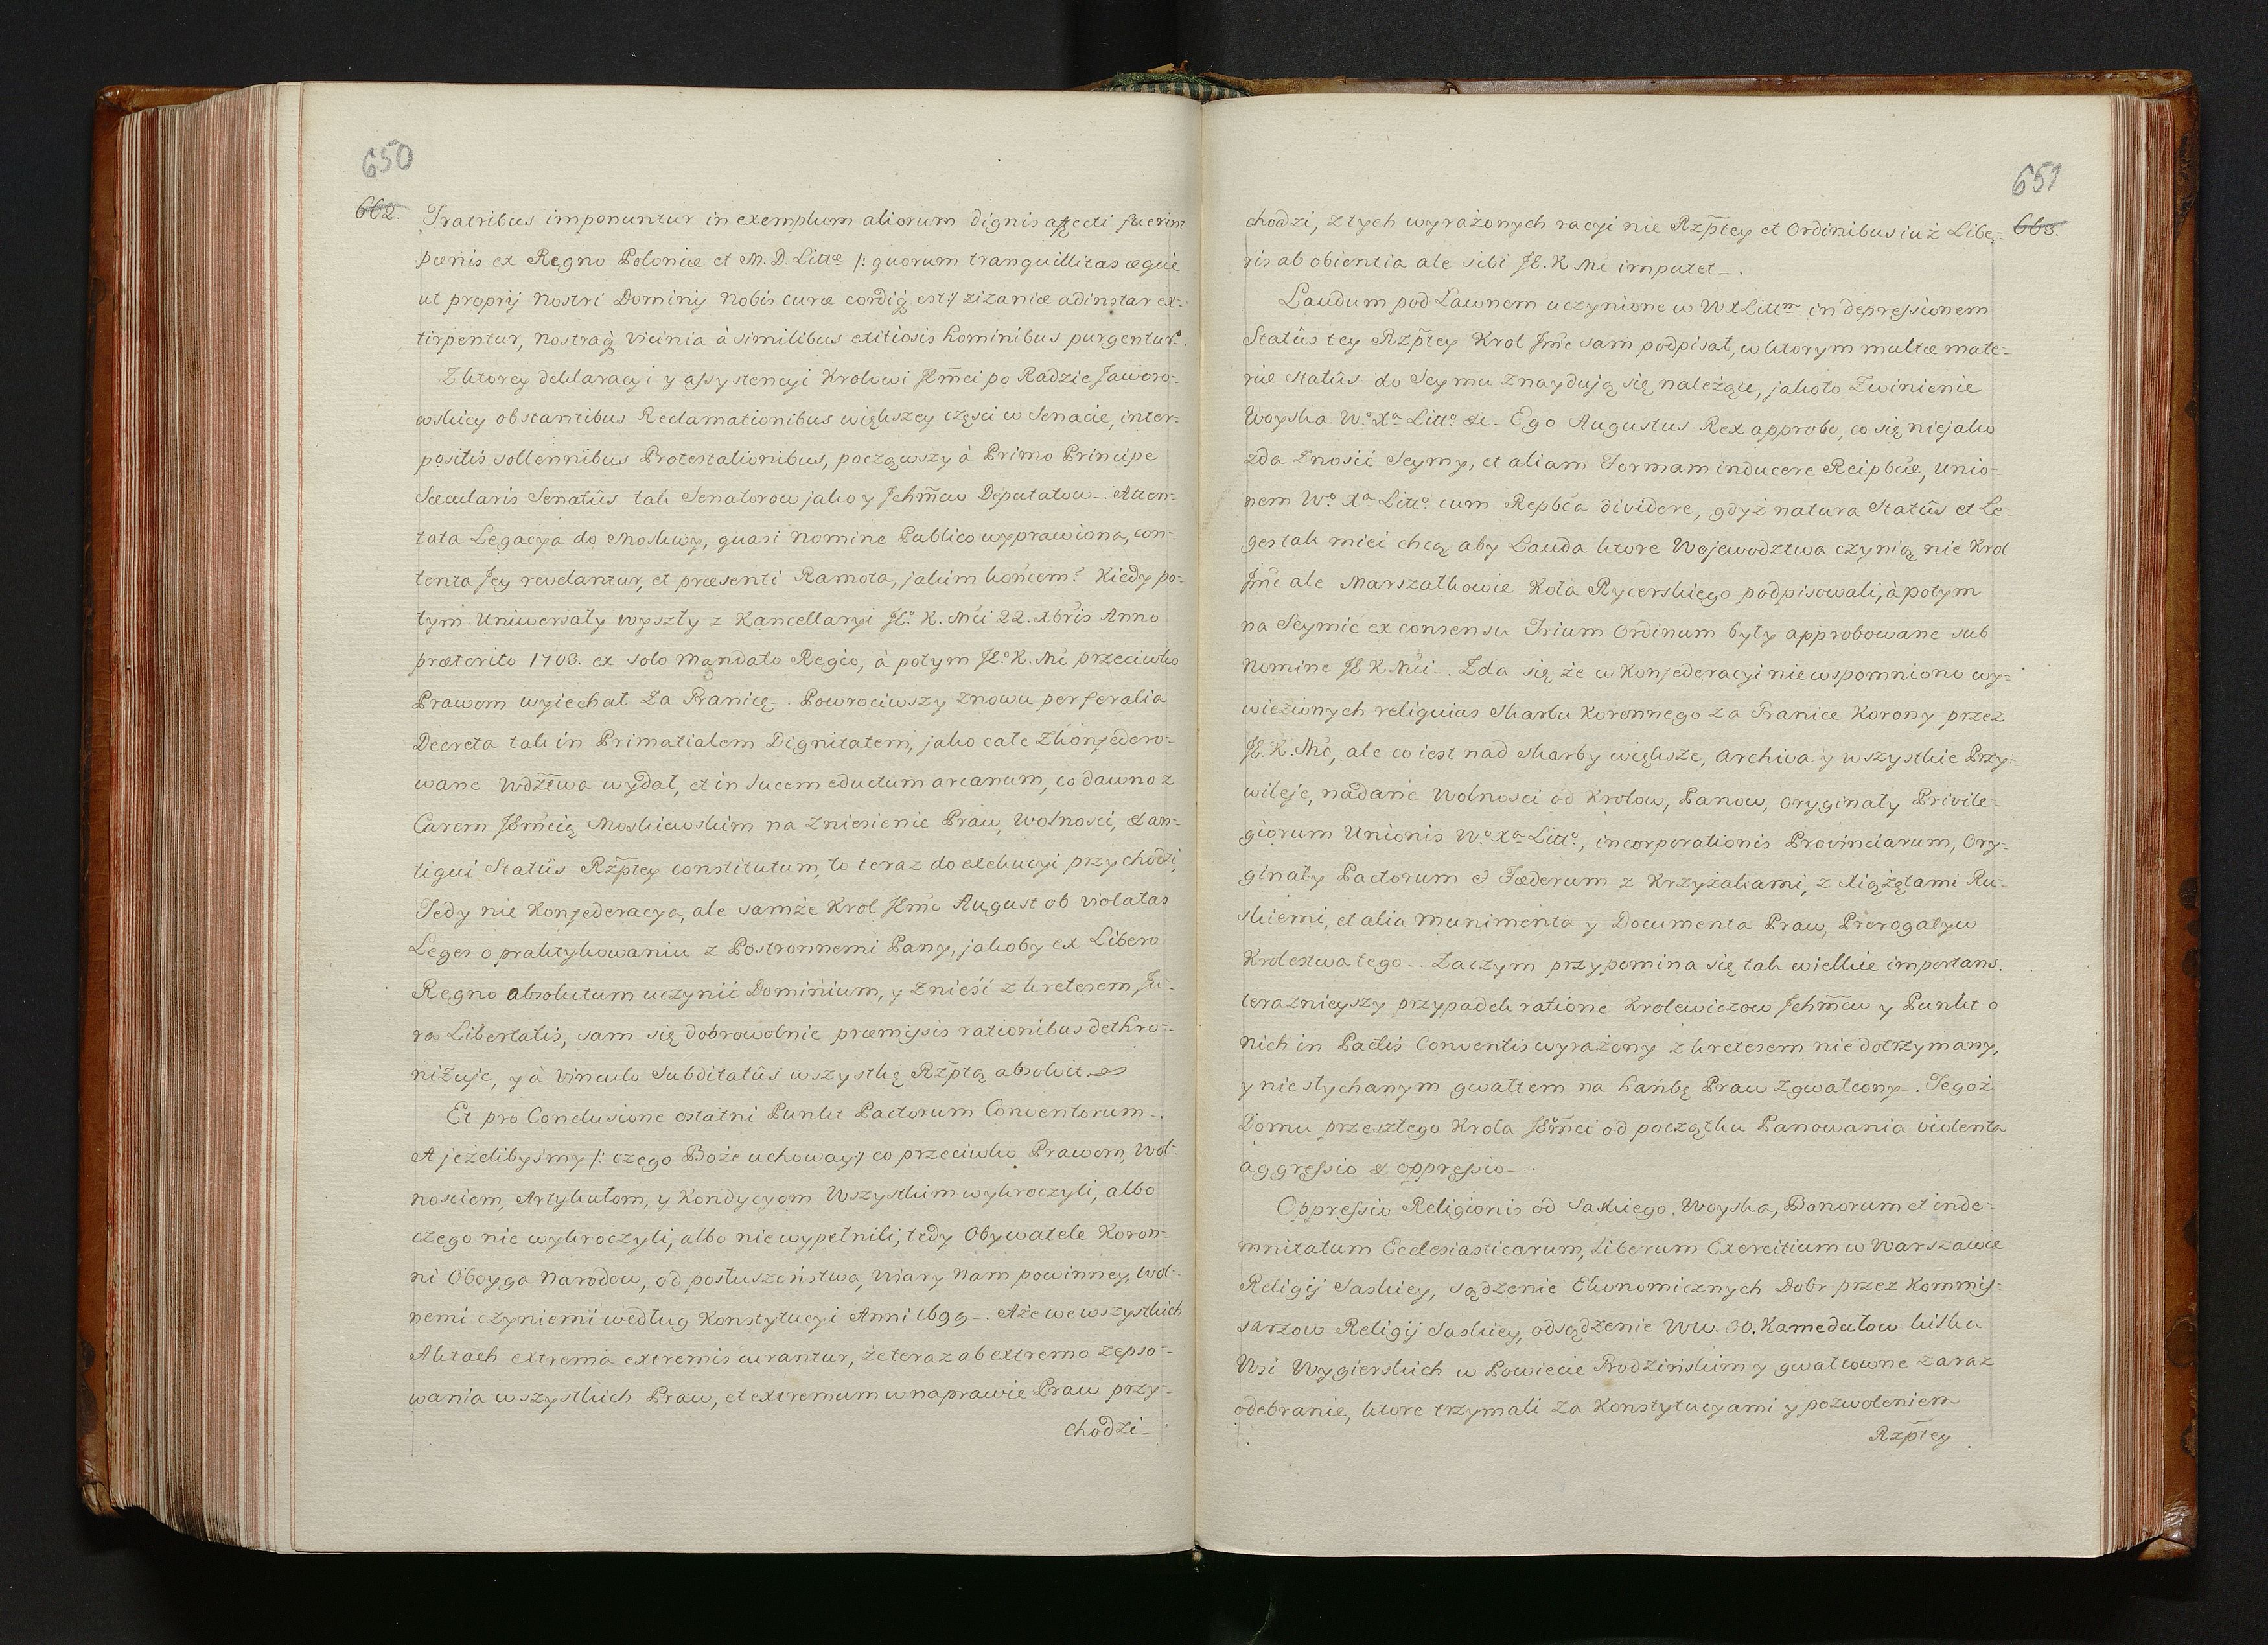 650
662.
Fratribus imponuntur in exemplum aliorum dignis affecti fuerint
pœnis ex Regno Poloniæ et M. D. Littæ /: quorum tranquillitas æque
ut proprij Nostri Dominij Nobis curæ cordiq est :/ zizaniæ adinstar ex-
tirpentur, Nostraq vicinia à similibus exitiosis hominibus purgentur.
Z ktorey deklaracyi y assystencyi Krolowi JEmci po Radzie Jaworo-
wskiey obstantibus Reclamationibus większey części w Senacie, inter-
positis sollennibus Protestationibus, począwszy à Primo Principe
Sæcularis Senatûs tak Senatorow jako y Jchmcw Deputatow. Atten-
tata Legacya do Moskwy, quasi Nomine Publico wyprawiona, con-
tenta Jey revelantur, et præsenti Ramota, jakim końcem? Kiedy po-
tym Uniwersały wyszły z Kancellaryi JEo. K. Mci 22. Xbris Anno
præterito 1703. ex solo Mandato Regio, à potym JEo. K. Mc przeciwko
Prawom wyiechał za Granicę. Powrociwszy znowu per feralia
Decreta tak in Primatialem Dignitatem, jako całe Zkonfedero-
wane Wdztwa wydał, et in lucem eductum arcanum, co dawno z
Carem JEmcią Moskiewskim na zniesienie Praw, Wolnosci, & an-
tiqui Statûs Rzptey constitutum, to teraz do exekucyi przychodzi,
Tedy nie Konfederacya, ale samże Krol JEmc August ob violatas
Leges o praktykowaniu z Postronnemi Pany, jakoby ex Libero
Regno absolutum uczynić Dominium, y znieść z kretesem Ju-
ra Libertatis, sam się dobrowolnie præmissis rationibus dethro-
nizuje, y à vinculo Subditatûs wszystkę Rzptą absolvit
Et pro Conclusione ostatni Punkt Pactorum Conventorum.
A jeżelibyśmy /: czego Boże uchoway :/ co przeciwko Prawom, Wol-
nosciom, Artykułom, y Kondycyom Wszystkim wykroczyli, albo
czego nie wykroczyli, albo nie wypełnili, tedy Obywatele Koron-
ni Oboyga Narodow, od posłuszeństwa, Wiary Nam powinney, Wol-
nemi czyniemi według Konstytucyi Anni 1699. Aże we wszystkich
Aktach extrema extremis curantur, że teraz ab extremo zepso-
wania wszystkich Praw, et extremum w naprawie Praw przy-
chodzi
651
663.
chodzi, z tych wyrażonych racyi nie Rzptey et Ordinibus iuż Libe-
ris ab obientia ale sibi JE. K Mc imputet.
Laudum pod Lawnem uczynione w WXLittm in depressionem
Statûs tey Rzptey Krol Jmc sam podpisał, w ktorym multæ mate-
riæ Statûs do Seymu znaydują się należące, jakoto Zwinienie
Woyska Wo. Xa Litto. &c. Ego Augustus Rex approbo, co się niejako
zda znosić Seymy, et aliam Formam inducere Reipbcæ, Unio-
nem Wo. Xa Litto. cum Repbca dividere, gdyż natura Statûs et Le-
ges tak mieć chcą aby Lauda ktore Wojewodztwa czynią nie Krol
Jmc ale Marszałkowie Koła Rycerskiego podpisowali, à potym
na Seymie ex consensu Trium Ordinum były approbowane sub
Nomine JE K Mci. Zda się że w Konfederacyi niewspomniono wy-
wiezionych reliquias Skarbu Koronnego za Granice Korony przez
JE. K. Mc, ale co iest nad Skarby większe, Archiva y wszystkie Przy-
wileje, nadane Wolnosci od Krolow, Panow, Oryginały Privile-
giorum Unionis Wo. Xa Litto, incorporationis Provinciarum, Ory-
ginały Pactorum & Fœderum z Krzyżakami, z Xiążętami Ru-
skiemi, et alia Munimenta y Documenta Praw, Prerogatyw
Krolestwa tego. Zaczym przypomina się tak wielkie importans.
teraznieyszy przypadek ratione Krolewiczow Jchmcw y Punkt o
nich in Pactis Conventis wyrażony z kretesem nie dotrzymany,
y niesłychanym gwałtem na hańbę Praw zgwałcony. Tegoż
Domu przeszłego Krola JEomci od początku Panowania violenta
aggressio & oppressio.
Oppressio Religionis od Saskiego Woyska, Bonorum et inde-
mnitatum Ecclesiasticarum, Liberum Exercitium w Warszawie
Religij Saskiey, sądzenie Ekonomicznych Dobr przez Kommis-
sarzow Religij Saskiey, odsądzenie WW. OO. Kamedułow kilku
Wsi Wygierskich w Powiecie Grodzińskim y gwałtowne zaraz
odebranie, ktore trzymali za Konstytucyami y pozwoleniem
Rzptey